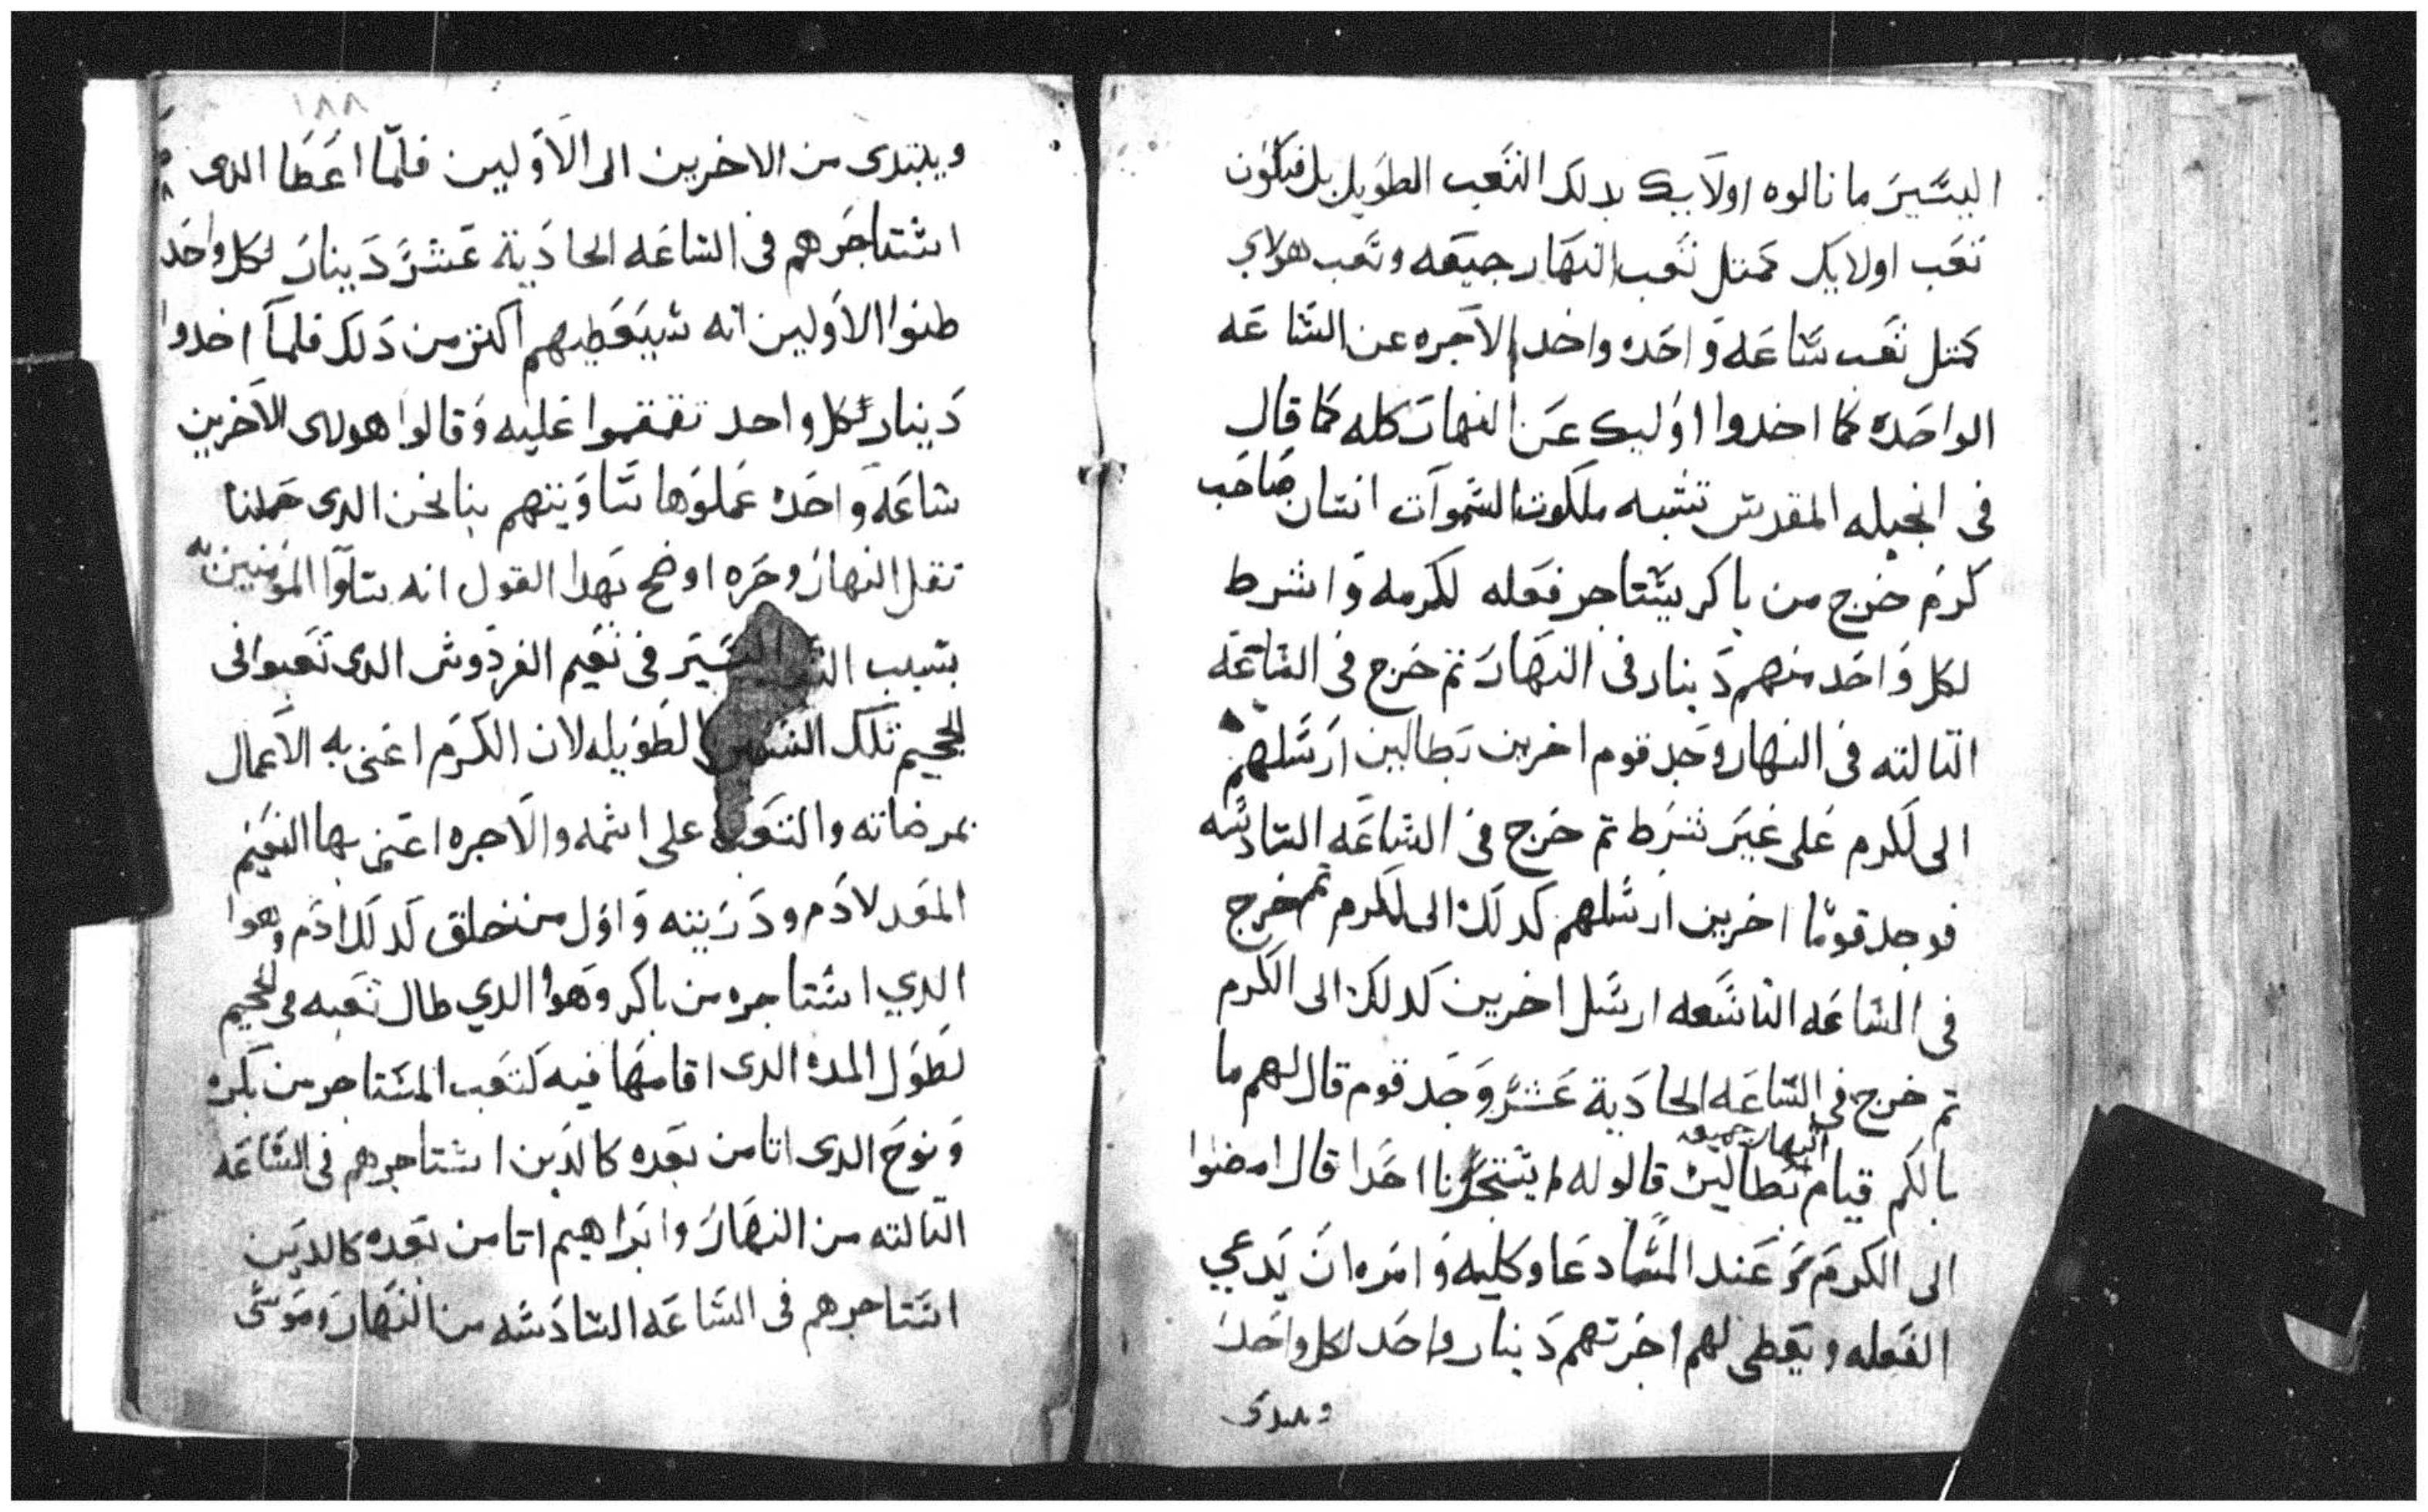 اليسير ما نالوه اولايك بدلك التعب الطويل بل فيكون
تعب اولايك كمتل تعب النهار جميعه وتعب هولاي
كمتل تعب ساعه واحده واخد الاجره عن الساعه
الواحده كما اخدوا اوليك عن النهار كله كما قال
فى انجيله المقدس تشبه ملكوت السموات انسان صاحب
كرم خرج من باكر يستاجر فعله لكرمه واشرط
لكل واحد منهم دينار فى النهار تم خرج فى الساعه
التالته فى النهار وجد قوم اخرين بطالين ارسلهم
الى لكرم على غير شرط تم خرج فى الساعه السادسه
فوجد قوما اخرين ارسلهم كدلك الى لكرم تم خرج
فى الساعه التاسعه ارسل اخرين كدلك الى الكرم
تم خرج فى الساعه الحادية عشر وجد قوم قال لهم ما
النهار جميعه
بالكم قيام بطالين قالو له لم يستجرنا احدا قال امضوا
الى الكرم عند المسا دعا وكليه وامره ان يدعي
الفعله ويعطى لهم اجرتهم دينار واحد لكل واحد
ويبتدى
١٨٨
ويبتدى من الاخرين الى الاولين فلما اعطا الدى
استاجرهم فى الساعه الحادية عشر دينار لكل واحد
طنوا الاولين انه سيعطيهم اكتر من دلك فلما اخدوا
دينار لكل واحد تقمقموا عليه وقالوا هولاى الاخرين
ساعه واحده عملوها ساويتهم بنا نحن الدى حملنا
تقل النهار وحره اوضح بهدا القول انه ساوا المومنين به
بسبب اليسير فى نعيم الفردوس الدى تعبوا فى
الجحيم تلك السنين الطويله لان الكرم اعنى به الاعمال
بمرضاته والتعب على اسمه والاجره اعنى بها النعيم
المعد لادم ودريته واول من خلق كدلك ادم وهوا
الدي استاجره من باكر وهوا الدي طال تعبه فى الجحيم
لطول المده الدى اقامها فيه كتعب المستاجر من بكره
ونوح الدى اتا من بعده كالدين استاجرهم فى الساعه
التالته من النهار وابراهيم اتا من بعده كالدين
استاجرهم فى الساعه السادسه من النهار وموسى